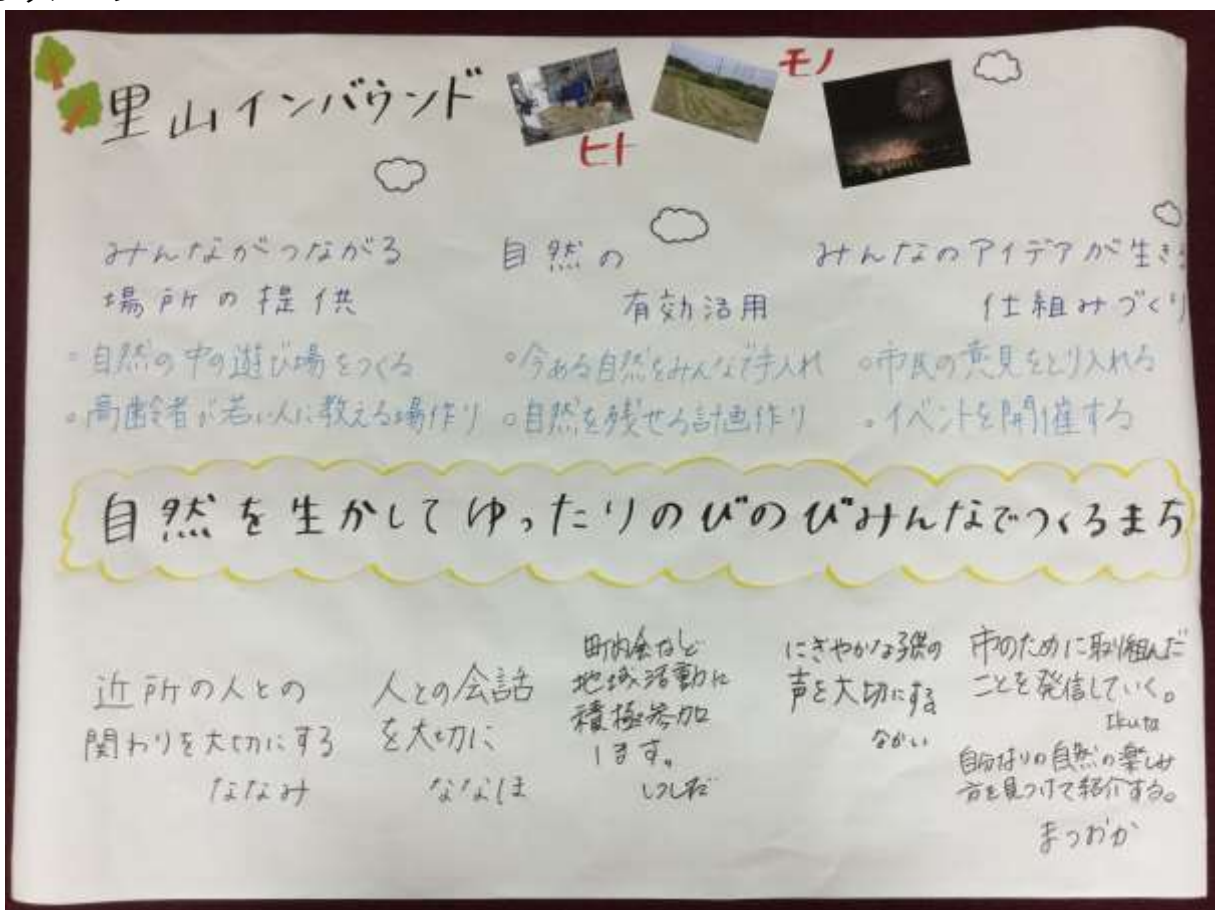 里山インバウンド
ヒト
モノ
みんながつながる
場所の提供
自然の
有効活用
みんなのアイデアが生きる
仕組みづくり
○自然の中の遊び場をつくる
○高齢者が若い人に教える場作り
○今ある自然をみんなで手入れ
○自然を残せる計画作り
○市民の意見をとり入れる
○イベントを開催する
自然を生かしてゆったりのびのびみんなでつくるまち
近所の人との
関わりを大切にする
ななみ
人との会話
を大切に
ななほ
町内会など
地域活動に
積極参加
します。
にぎやかな子供の
声を大切にする
ながい
市のために取り組んだ
ことを発信していく。
Ikuta
自分なりの自然の楽しみ
方を見つけて紹介する。
まつおか